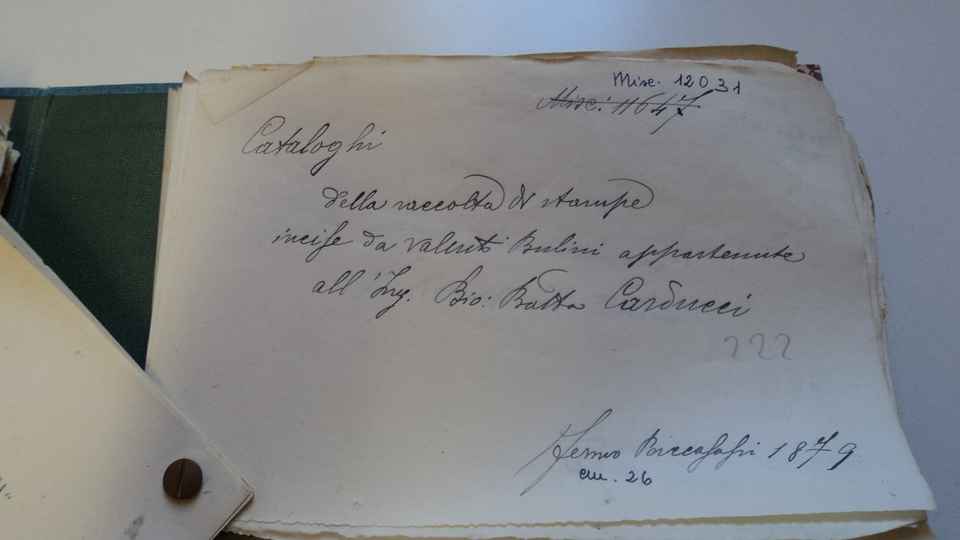 Misc. 12031
Misc: 11647
Cataloghi
della raccolta di stampe
incise da valenti Bulini appartenute
all'Ing. Gio: Batta Carducci
222
Fermo 1879